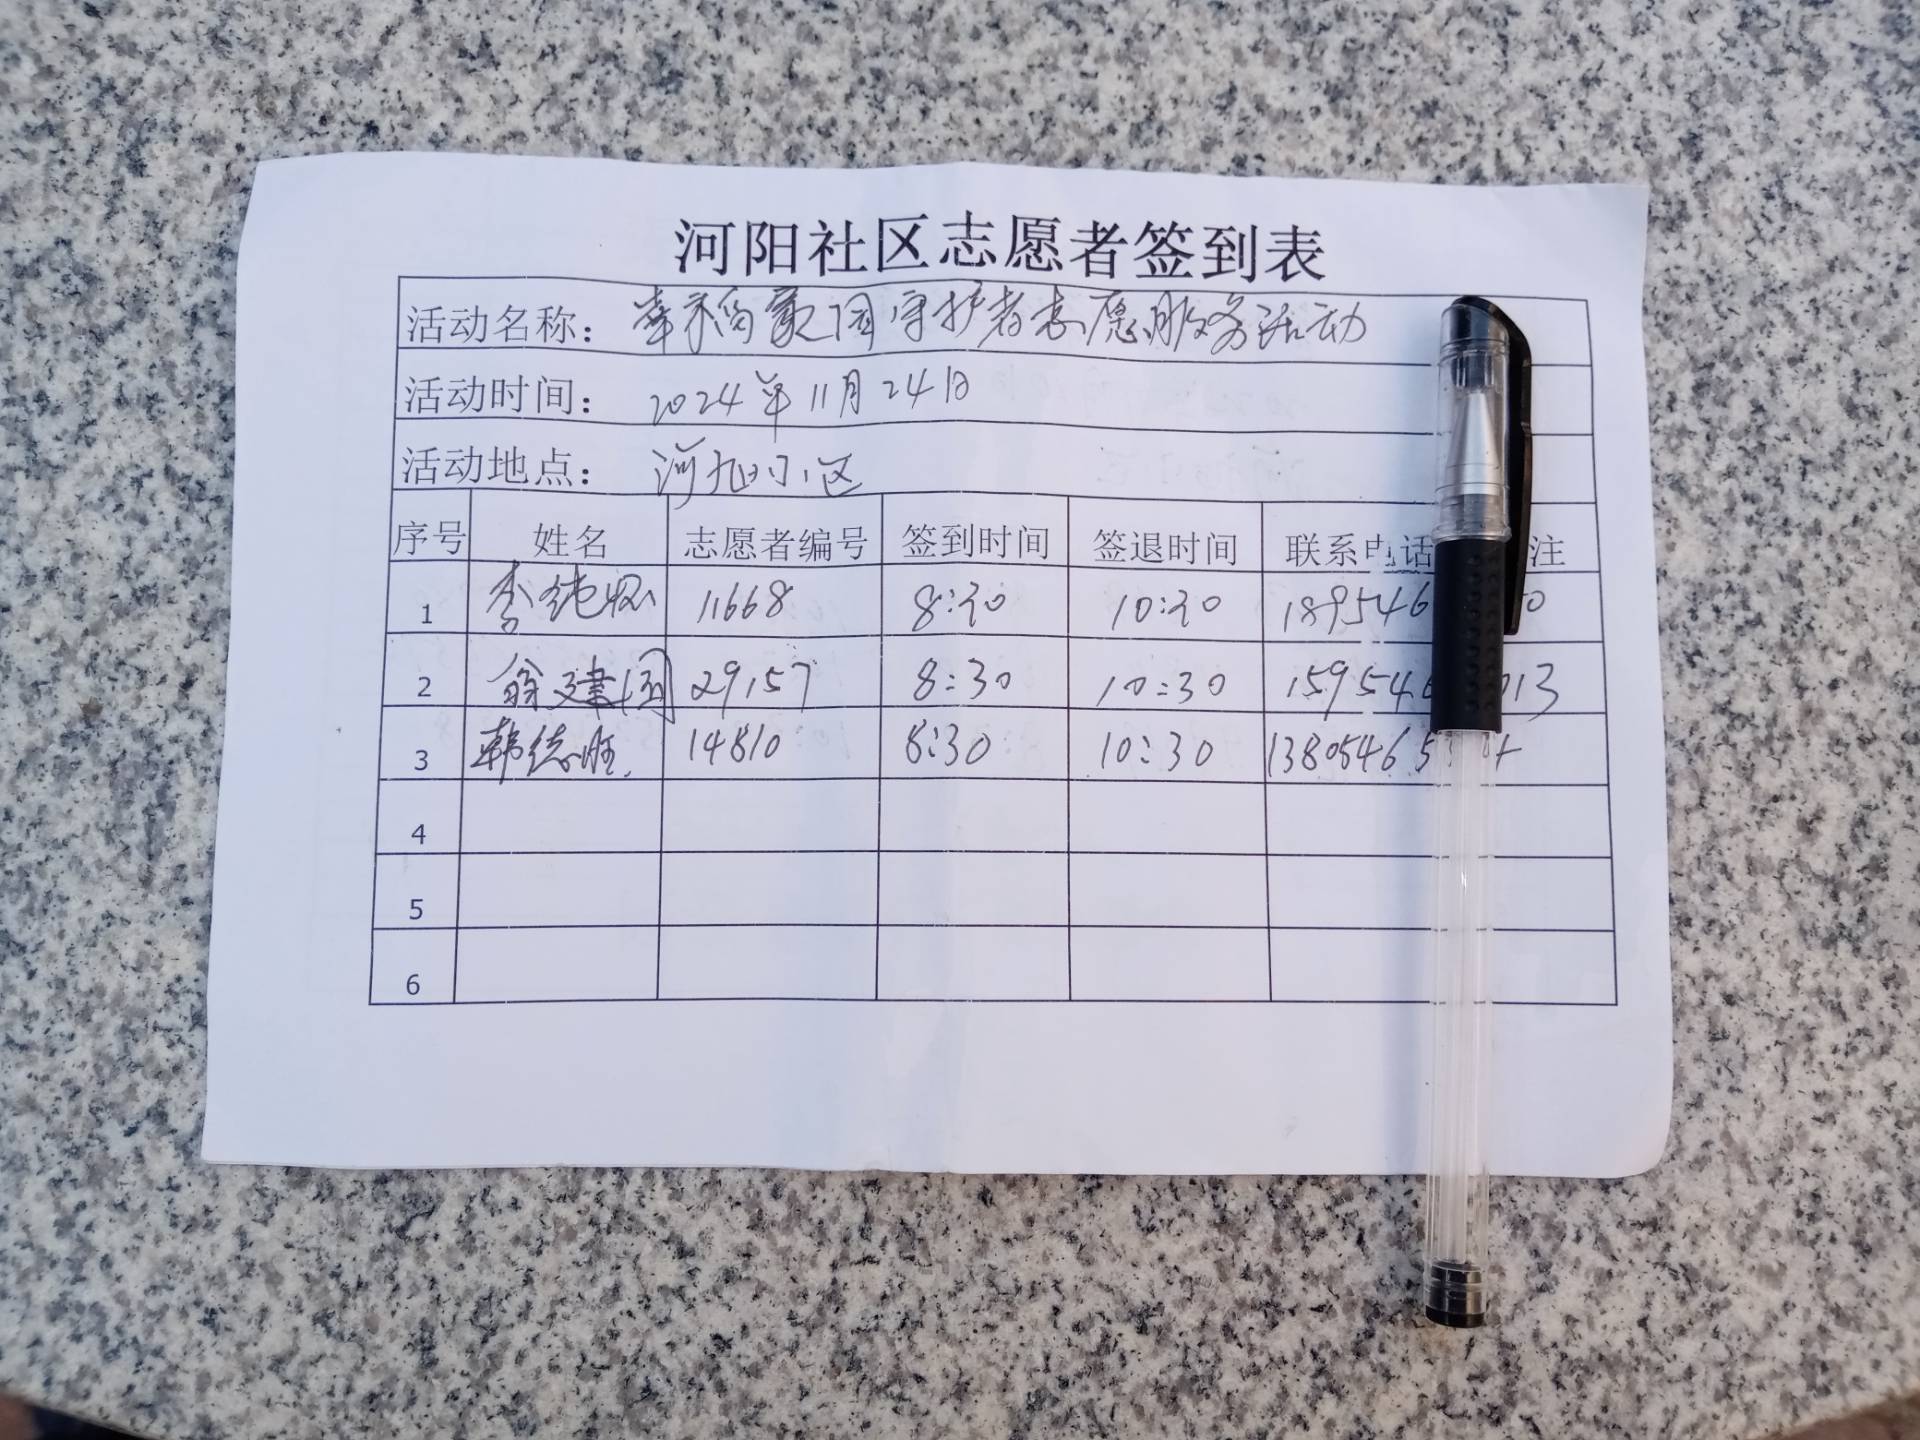 河阳社区志愿者签到表
活动名称： 幸福家园守护者志愿服务活动
活动时间： 2024年11月24日
活动地点： 河阳小区
序号 姓名 志愿者编号 签到时间 签退时间 联系电话 注
1 李纯 11668 8:30 10:30 189546 0
2 翁建国 29157 8:30 10:30 159546 013
3 韩德胜 14810 8:30 10:30 1380546 5
4
5
6